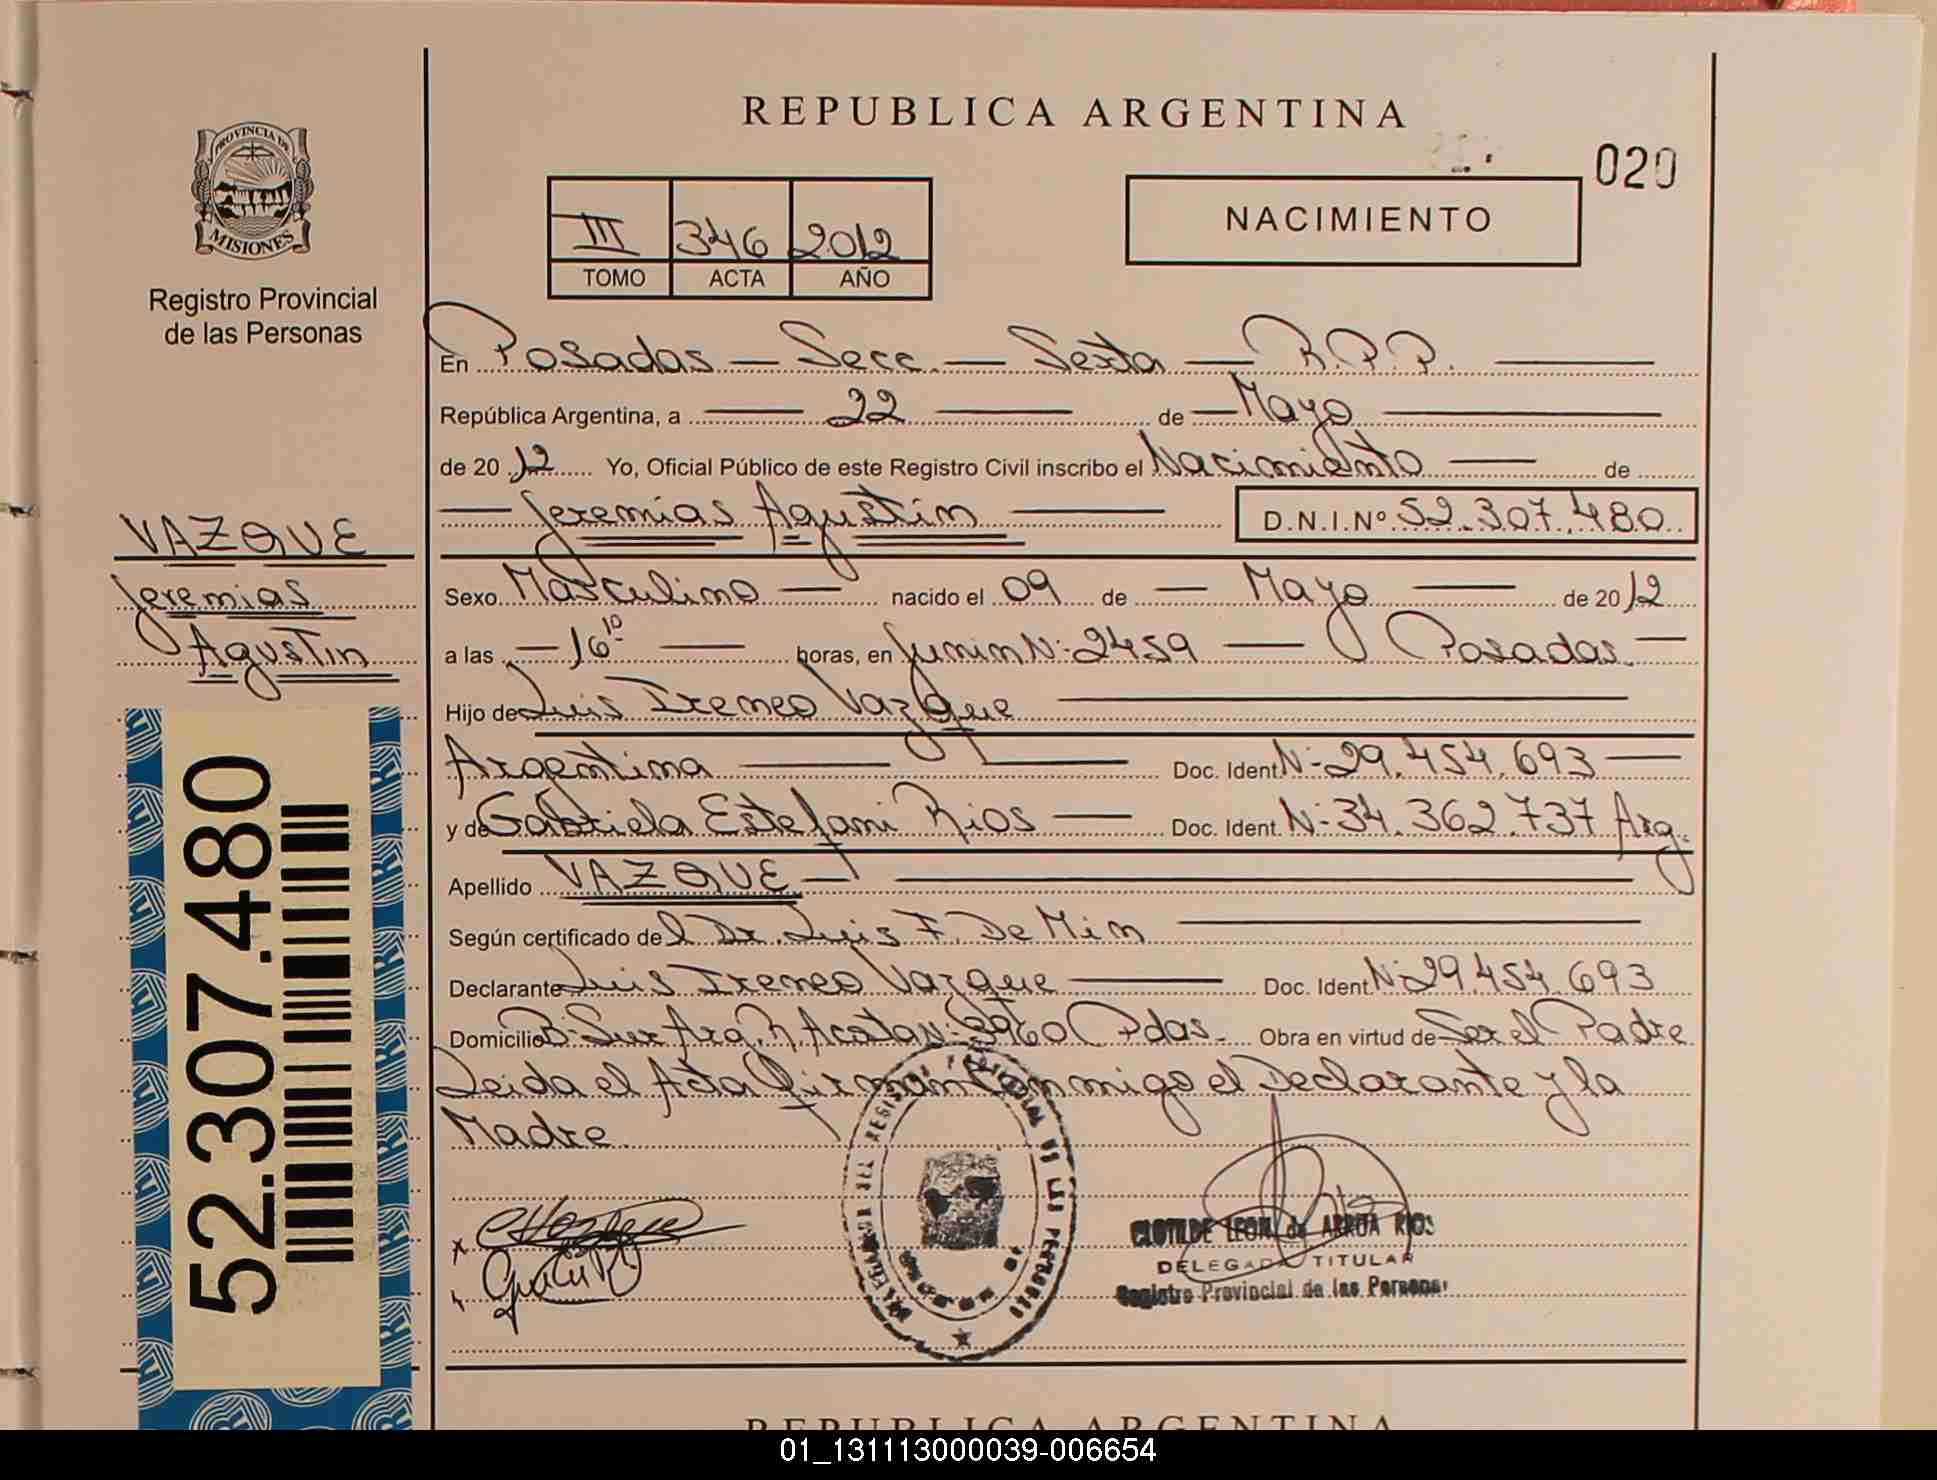 REPUBLICA ARGENTINA
020
PROVINCIA DE
MISIONES
Registro Provincial
de las Personas
III 346 2012
TOMO ACTA AÑO
NACIMIENTO
En Posadas — Secc. — Sexta — R.P.P. —
República Argentina, a — 22 — de — Mayo —
de 20 12 Yo, Oficial Público de este Registro Civil inscribo el Nacimiento — de
— Jeremias Agustin — D.N.I.Nº 52.307.480
VAZQUE
Jeremias
Agustin
Sexo Masculino — nacido el 09 de — Mayo — de 20 12
a las — 16 10 — horas, en Junin N: 2459 — Posadas. —
Hijo de Luis Ireneo Vazque —
Argentina — Doc. Ident. N: 29.454.693 —
y de Gabriela Estefani Rios — Doc. Ident. N: 34.362.737 Arg.
Apellido VAZQUE —
Según certificado del Dr. Luis F. De Min —
Declarante Luis Ireneo Vazque — Doc. Ident. N: 29.454.693
Domicilio B: Sur Arg. R. Acosta N: 3960 Pdas. Obra en virtud de Ser el Padre
Leida el Acta firman conmigo el Declarante y la
Madre.
CLOTILDE LEON de ARRUA RIOS
DELEGADA TITULAR
Registro Provincial de las Personas
52.307.480
REPUBLICA ARGENTINA
01_131113000039-006654